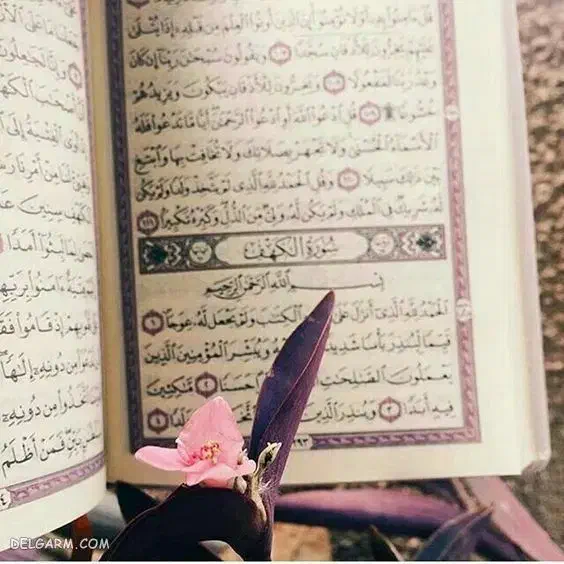 قُلْ ءَامِنُوا۟ بِهِۦٓ أَوْ لَا تُؤْمِنُوٓا۟ إِنَّ ٱلَّذِينَ أُوتُوا۟ ٱلْعِلْمَ مِن قَبْلِهِۦٓ إِذَا يُتْلَىٰ
عَلَيْهِمْ يَخِرُّونَ لِلْأَذْقَانِ سُجَّدًا ١٠٧ وَيَقُولُونَ سُبْحَٰنَ رَبِّنَآ إِن كَانَ
وَعْدُ رَبِّنَا لَمَفْعُولًا ١٠٨ وَيَخِرُّونَ لِلْأَذْقَانِ يَبْكُونَ وَيَزِيدُهُمْ
خُشُوعًا ۩ ١٠٩ قُلِ ٱدْعُوا۟ ٱللَّهَ أَوِ ٱدْعُوا۟ ٱلرَّحْمَٰنَ أَيًّا مَّا تَدْعُوا۟ فَلَهُ
ٱلْأَسْمَآءُ ٱلْحُسْنَىٰ وَلَا تَجْهَرْ بِصَلَاتِكَ وَلَا تُخَافِتْ بِهَا وَٱبْتَغِ
بَيْنَ ذَٰلِكَ سَبِيلًا ١١٠ وَقُلِ ٱلْحَمْدُ لِلَّهِ ٱلَّذِى لَمْ يَتَّخِذْ وَلَدًا وَلَمْ يَكُن
لَّهُۥ شَرِيكٌ فِى ٱلْمُلْكِ وَلَمْ يَكُن لَّهُۥ وَلِىٌّ مِّنَ ٱلذُّلِّ وَكَبِّرْهُ تَكْبِيرًۢا ١١١
سُورَةُ الكَهْفِ
بِسْمِ ٱللَّهِ ٱلرَّحْمَٰنِ ٱلرَّحِيمِ
ٱلْحَمْدُ لِلَّهِ ٱلَّذِىٓ أَنزَلَ عَلَىٰ ٱلْكِتَٰبَ وَلَمْ يَجْعَل لَّهُۥ عِوَجَا ١
قَيِّمًا لِّيُنذِرَ بَأْسًا شَدِيدًا وَيُبَشِّرَ ٱلْمُؤْمِنِينَ ٱلَّذِينَ
يَعْمَلُونَ ٱلصَّٰلِحَٰتِ حَسَنًا ٢ مَّٰكِثِينَ
فِيهِ أَبَدًا ٣ وَيُنذِرَ ٱلَّذِينَ وَلَدًا ٤
٢٩٣
جَعَلْنَا مَا عَلَى
وَإِنَّا لَجَٰعِلُونَ
أَصْحَٰبَ ٱلْكَهْفِ
أَوَى ٱلْفِتْيَةُ إِلَى
لَنَا مِنْ أَمْرِنَا رَشَدًا
ٱلْكَهْفِ سِنِينَ عَدَدًا
لِمَا لَبِثُوٓا۟ أَمَدًا
فِتْيَةٌ ءَامَنُوا۟ بِرَبِّهِمْ
قُلُوبِهِمْ إِذْ قَامُوا۟ فَقَالُوا۟
مِن دُونِهِۦٓ إِلَٰهًا
ٱتَّخَذُوا۟ مِن دُونِهِۦٓ
بَيِّنٍ فَمَنْ أَظْلَمُ
DELGARM.COM